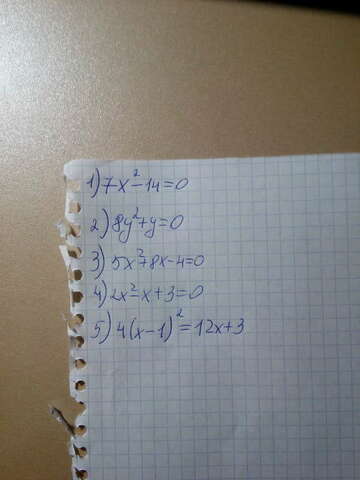 1) 7x² - 14 = 0
2) 8y² + y = 0
3) 5x² + 8x - 4 = 0
4) 2x² - x + 3 = 0
5) 4(x - 1)² = 12x + 3